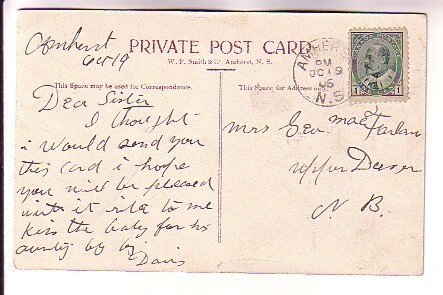 Amherst
Oct 19
PRIVATE POST CARD
W. F. Smith & Co. Amherst, N. S.
This Space may be used for Correspondence.
This Space for Address only
AMHERST
PM
OC 19
N.S.
Dear Sister
I thought
i would send you
this card i hope
you will be pleased
with it rite to me
kiss the baby for his
aunty by by
Mrs Geo. MacFarlane
upper Dover
N. B.